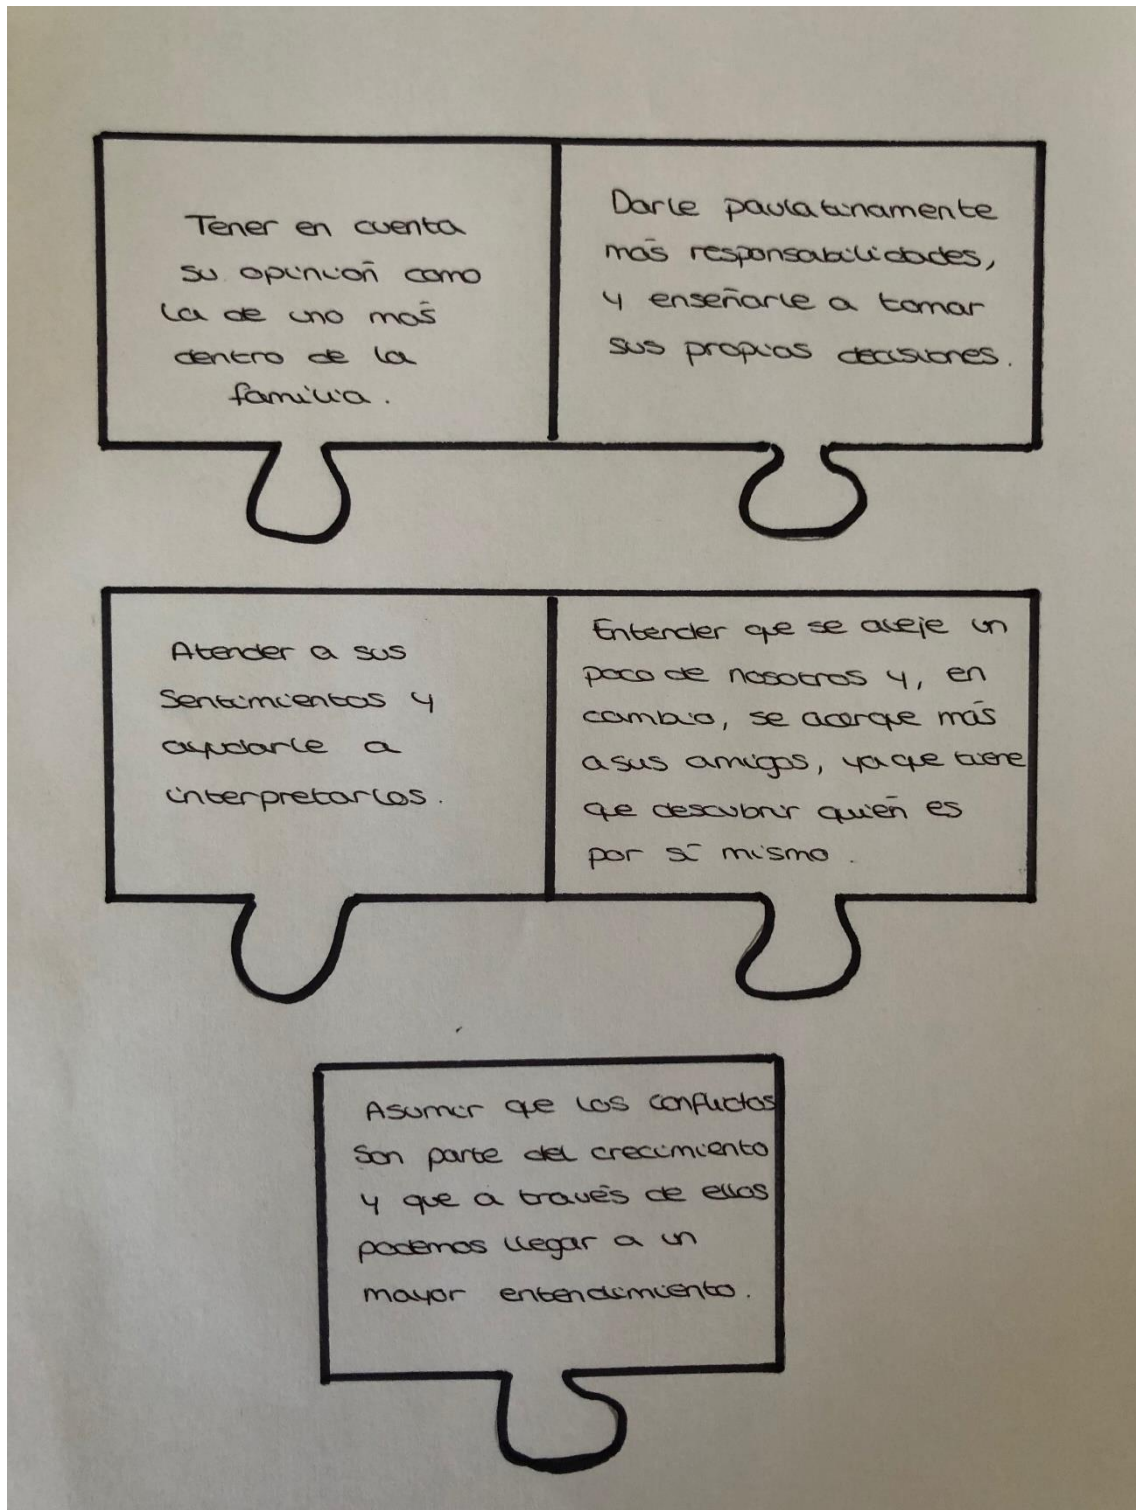 Tener en cuenta
su opinión como
la de uno más
dentro de la
familia.
Darle paulatinamente
más responsabilidades,
y enseñarle a tomar
sus propias decisiones.
Atender a sus
sentimientos y
ayudarle a
interpretarlos.
Entender que se aleje un
poco de nosotros y, en
cambio, se acerque más
a sus amigos, ya que tiene
que descubrir quién es
por sí mismo.
Asumir que los conflictos
son parte del crecimiento
y que a través de ellos
podemos llegar a un
mayor entendimiento.